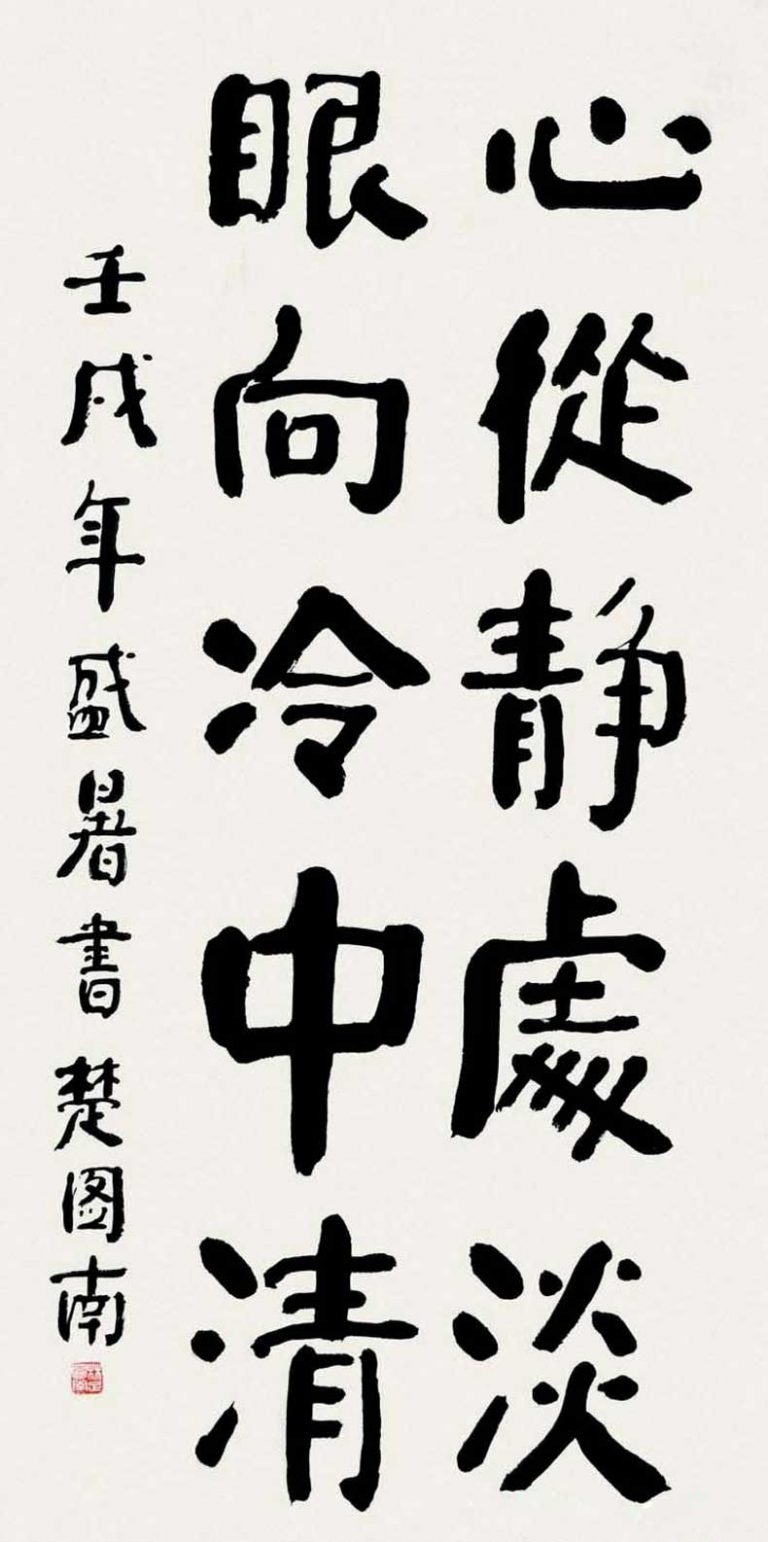 心從静處淡
眼向冷中清
壬戌年盛暑書楚图南